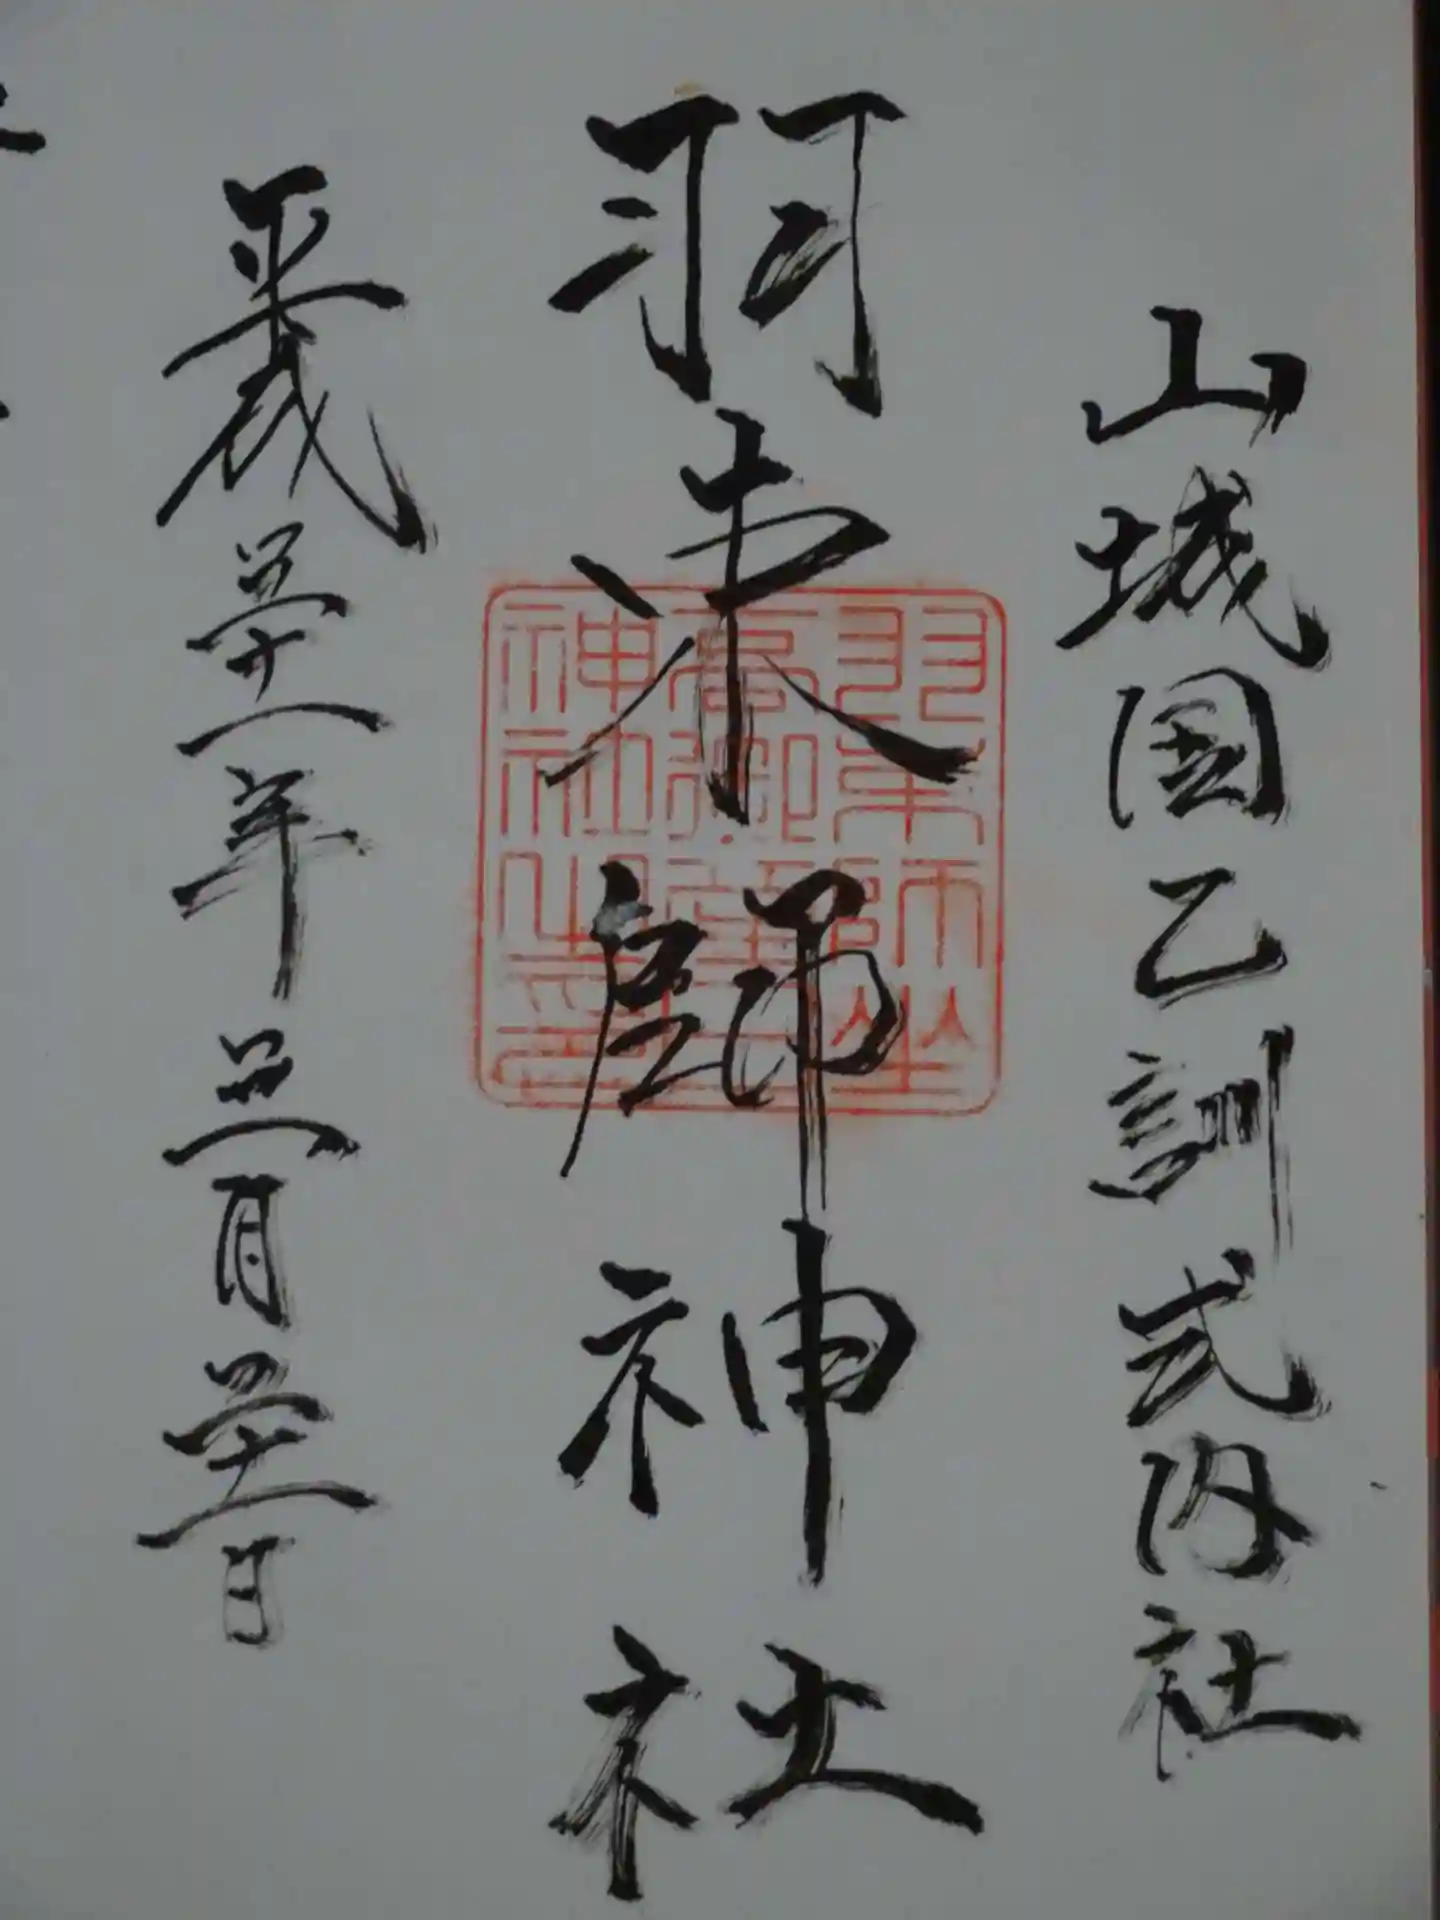 山城国乙訓式内社
羽束師神社
羽束師坐
高御産日
神社之印
平成三十一年三月二十一日